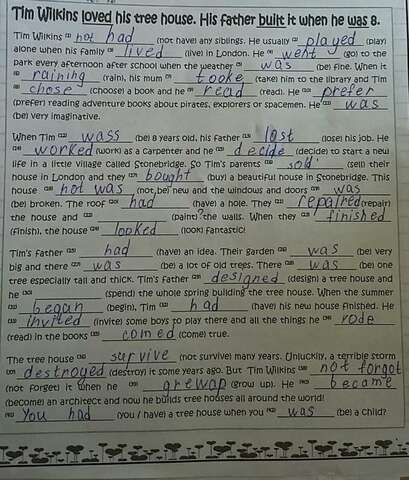 Tim Wilkins loved his tree house. His father built it when he was 8.
Tim Wilkins (1) not had (not have) any siblings. He usually (2) played (play)
alone when his family (3) lived (live) in London. He (4) went (go) to the
park every afternoon after school when the weather (5) was (be) fine. When it
(6) raining (rain), his mum (7) tooke (take) him to the library and Tim
(8) chose (choose) a book and he (9) read (read). He (10) prefer
(prefer) reading adventure books about pirates, explorers or spacemen. He (11) was
(be) very imaginative.
When Tim (12) wass (be) 8 years old, his father (13) lost (lose) his job. He
(14) worked (work) as a carpenter and he (15) decide (decide) to start a new
life in a little village called Stonebridge. So Tim's parents (16) sold (sell) their
house in London and they (17) bought (buy) a beautiful house in Stonebridge. This
house (18) not was (not be) new and the windows and doors (19) was
(be) broken. The roof (20) had (have) a hole. They (21) repaired (repair)
the house and (22) (paint) the walls. When they (23) finished
(finish), the house (24) looked (look) fantastic!
Tim's father (25) had (have) an idea. Their garden (26) was (be) very
big and there (27) was (be) a lot of old trees. There (28) was (be) one
tree especially tall and thick. Tim's father (29) designed (design) a tree house and
he (30) (spend) the whole spring building the tree house. When the summer
(31) began (begin), Tim (32) had (have) his new house finished. He
(33) invited (invite) some boys to play there and all the things he (34) rode
(read) in the books (35) comed (come) true.
The tree house (36) survive (not survive) many years. Unluckily, a terrible storm
(37) destroyed (destroy) it some years ago. But Tim Wilkins (38) not forgot
(not forget) it when he (39) grewap (grow up). He (40) became
(become) an architect and now he builds tree houses all around the world!
(41) You had (you / have) a tree house when you (42) was (be) a child?